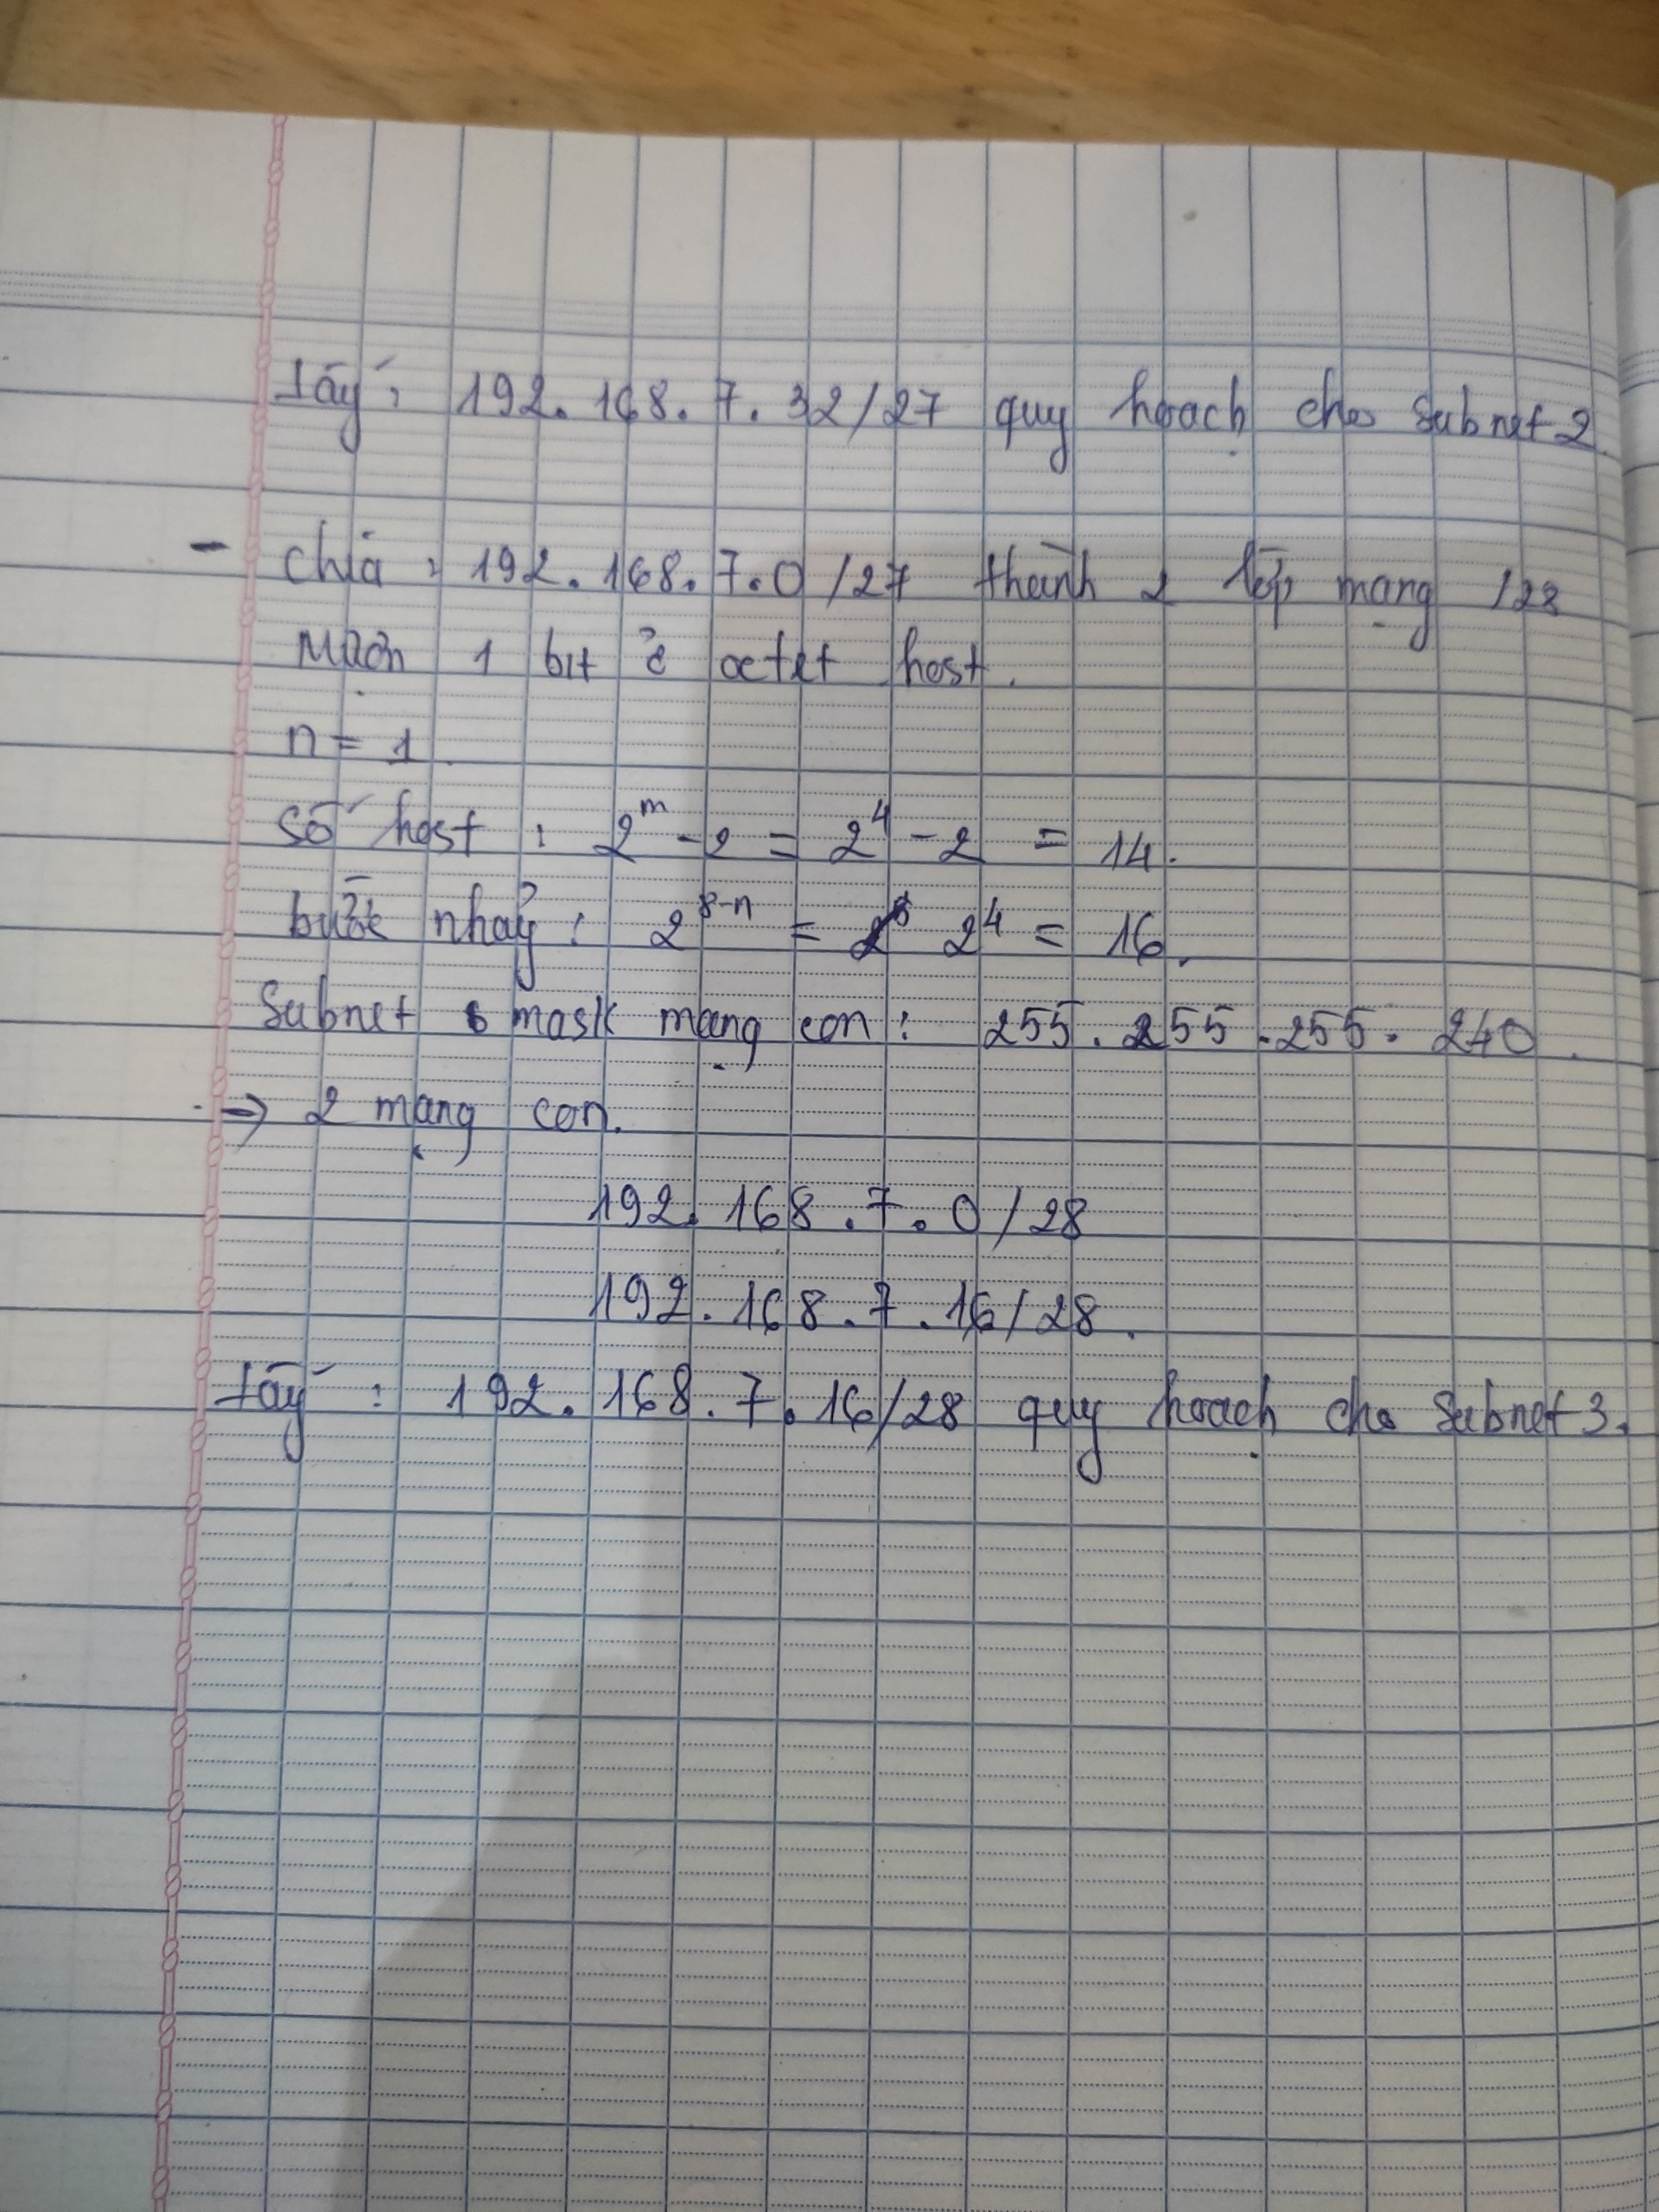 Lấy : 192.168.7.32/27 quy hoạch cho Subnet 2.
- Chia : 192.168.7.0/27 thành 2 lớp mạng /28
Mượn 1 bit ở octet host.
n = 1
Số host : 2^m - 2 = 2^4 - 2 = 14.
bước nhảy : 2^8-n = 2^4 = 16.
Subnet mask mạng con : 255.255.255.240.
=> 2 mạng con.
192.168.7.0/28
192.168.7.16/28.
Lấy : 192.168.7.16/28 quy hoạch cho Subnet 3.